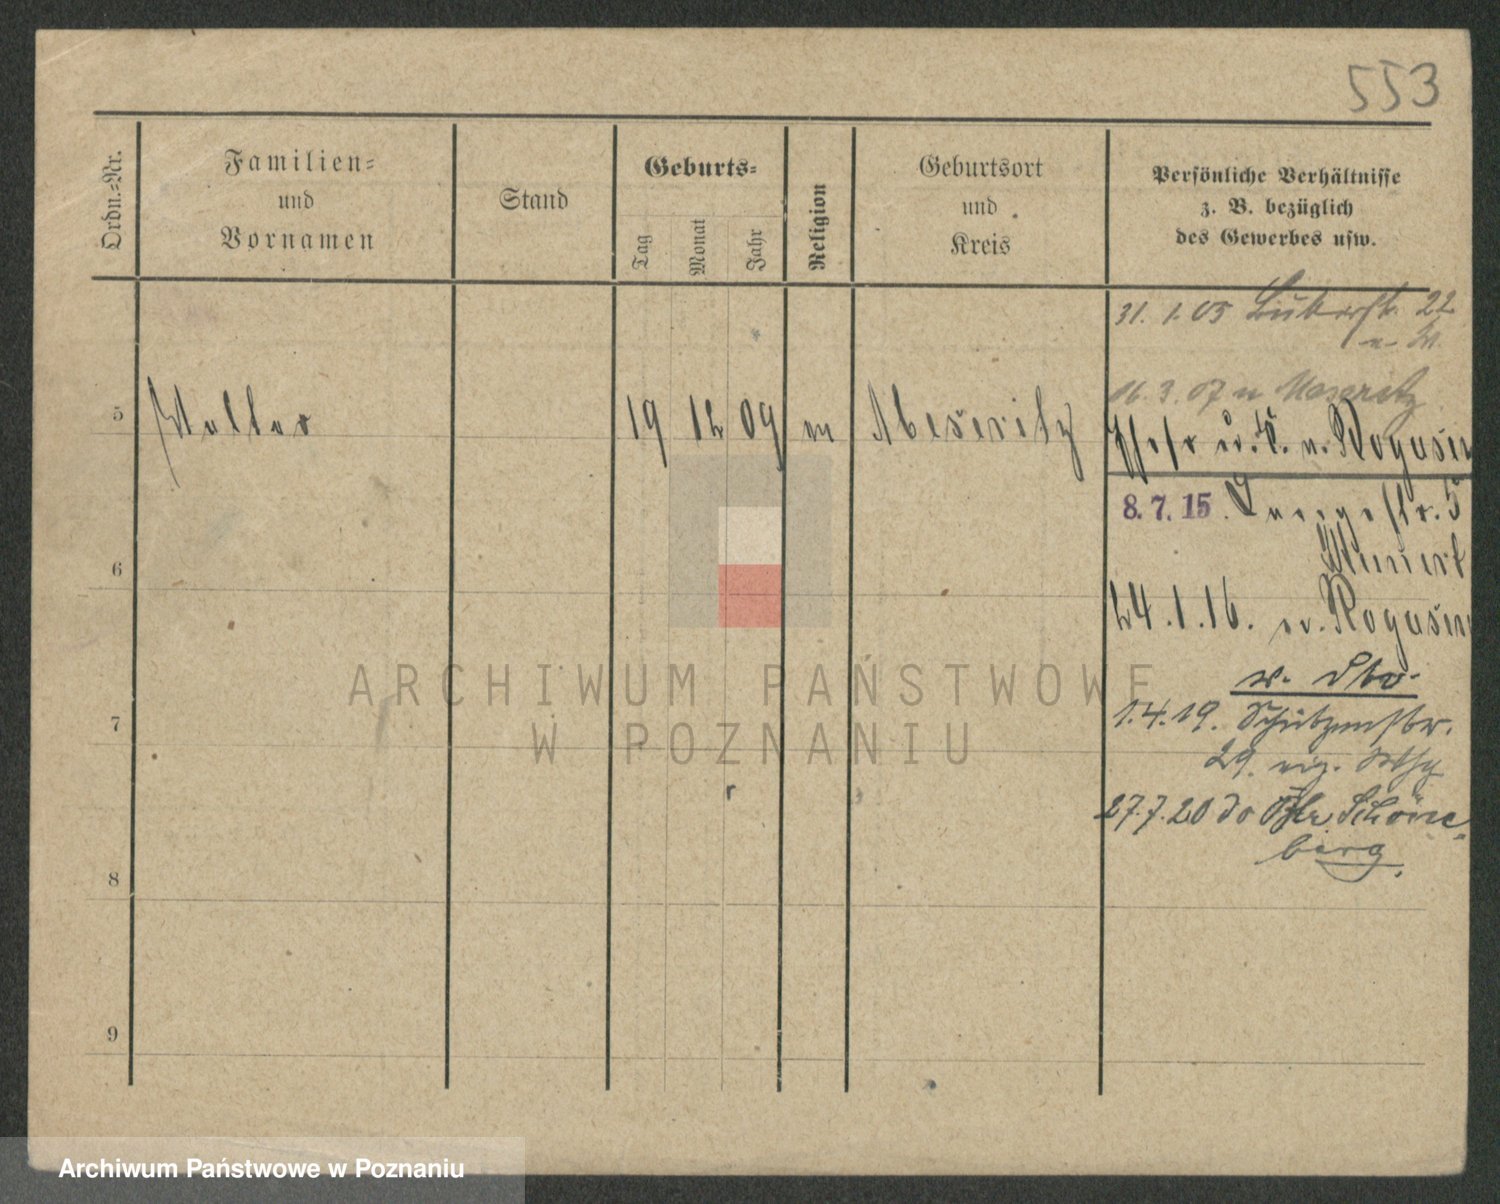 553
Ordn.=Nr.
Familien=
und
Vornamen
Stand
Geburts=
Tag
Monat
Jahr
Religion
Geburtsort
und
Kreis
Persönliche Verhältnisse
z. B. bezüglich
des Gewerbes usw.
31. 1. 05 22
16. 3. 07 n Meseritz
5 Walter 19 12 09 m Meseritz
n. Rogasen
8. 7. 15. 5
6
24. 1. 16. v. Rogasen
1. 4. 19. Schützenstr.
7
29.
27. 7. 20 Schöne-
berg
8
9
ARCHIWUM PAŃSTWOWE
W POZNANIU
Archiwum Państwowe w Poznaniu